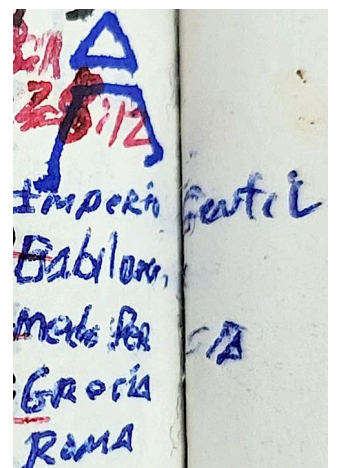 Imperio Gentil
Babilonia
Medo Persia
Grecia
Roma